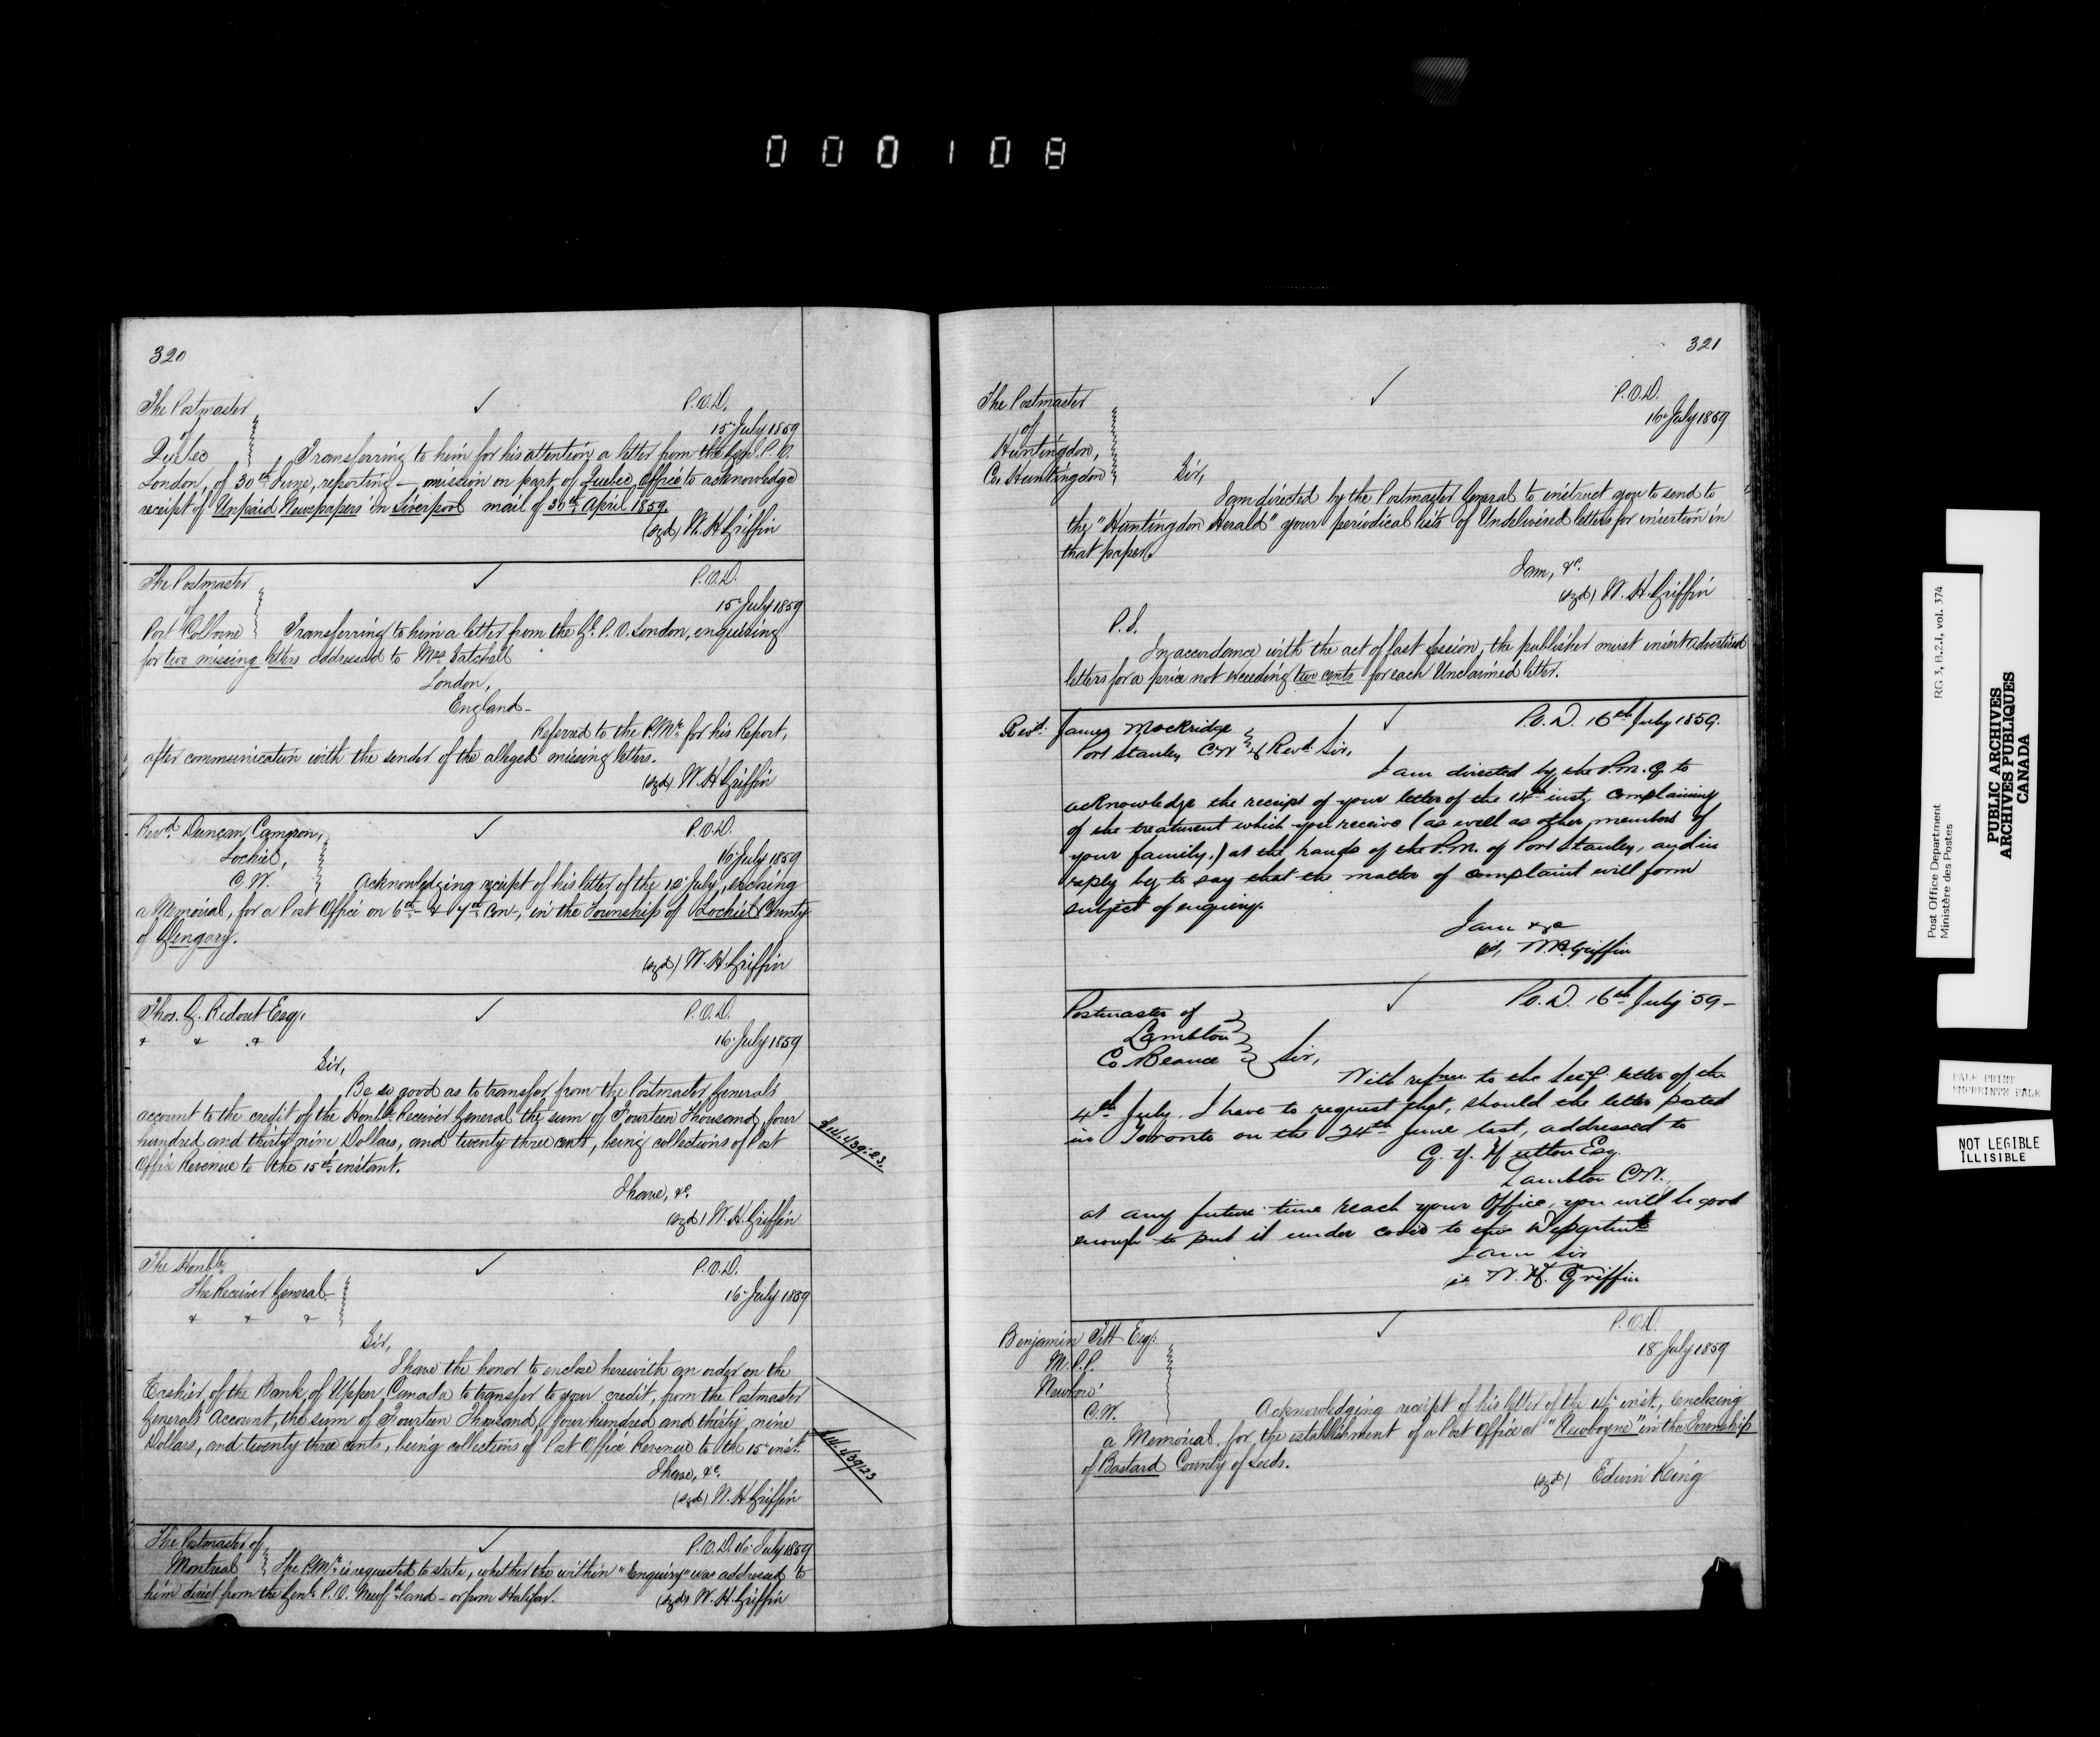 000108
320
The Postmaster ✓ P.O.D.
of 15 July 1859
Quebec Transferring to him for his attention a letter from the Genl. P.O.
London, of 30th June, reporting omission on part of Quebec Office to acknowledge
receipt of Unpaid Newspapers in Liverpool mail of 30th April 1859.
(sgd) W. H. Griffin
The Postmaster ✓ P.O.D.
of 15 July 1859
Port Colborne Transferring to him a letter from the Gl. P.O. London, enquiring
for two missing letters addressed to Mrs Satchell
London,
England -
Referred to the P.Mr. for his Report,
after communication with the sender of the alleged missing letters.
(sgd) W. H. Griffin
Revd. Duncan Cameron, ✓ P.O.D.
Lochiel, 16 July 1859
C.W. Acknowledging receipt of his letter of the July, enclosing
a Memorial, for a Post Office on 6th & 7th Con-, in the Township of Lochiel County
of Glengary.
(sgd) W. H. Griffin
Thos. G. Ridout Esq. ✓ P.O.D.
& & & 16 July 1859
Sir,
Be so good as to transfer from the Postmaster General's
account to the credit of the Honble Receiver General the sum of Fourteen Thousand, four
hundred and thirty nine Dollars, and twenty three cents, being collections of Post
Office Revenue to the 15th instant. $14,439.23
I have, &c.
(sgd) W. H. Griffin
The Honble. ✓ P.O.D.
The Receiver General 16 July 1859
& & &
Sir,
I have the honor to enclose herewith an order on the
Cashier of the Bank of Upper Canada to transfer to your credit, from the Postmaster
General's Account, the sum of Fourteen Thousand, four hundred and thirty nine
Dollars, and twenty three cents, being collections of Post Office Revenue to the 15 inst. $14,439.23
I have, &c.
(sgd) W. H. Griffin
The Postmaster of ✓ P.O.D. 16 July 1859
Montreal The P.Mr. is requested to state, whether the within "Enquiry" was addressed to
him direct from the Genl. P.O. Newfdland - or from Halifax. (sgd) W. H. Griffin
321
The Postmaster ✓ P.O.D.
of 16 July 1859
Huntingdon,
Co. Huntingdon Sir,
I am directed by the Postmaster General to instruct you to send to
the "Huntingdon Herald" your periodical lists of Undelivered letters for insertion in
that paper.
I am, &c.
(sgd) W. H. Griffin
P.S.
In accordance with the act of last session, the publisher must insert advertised
letters for a price not exceeding two cents for each Unclaimed letter.
Revd. James Mockridge ✓ P.O.D. 16th July 1859.
Port Stanley C.W. Revd. Sir,
I am directed by the P.M.G. to
acknowledge the receipt of your letter of the 14th inst, complaining
of the treatment which you receive (as well as other members of
your family.) at the hands of the P.M. of Port Stanley, and in
reply beg to say that the matter of complaint will form
subject of enquiry.
I am &c
W. H. Griffin
Postmaster of ✓ P.O.D. 16th July 59-
Lambton
Co Beauce Sir,
With refnce to the Secy. letter of the
4th July. I have to request that, should the letter posted
in Toronto on the 24th June last, addressed to
G. Y. Hutton Esq.
Lambton C.W.
at any future time reach your Office, you will be good
enough to put it under cover to the Departmt
I am Sir
W. H. Griffin
Benjamin Tett Esq. ✓ P.O.D.
M.P.P. 18 July 1859
Newboro'
C.W. Acknowledging receipt of his letter of the inst., enclosing
a Memorial, for the establishment of a Post Office at "Newboyne" in the Township
of Bastard County of Leeds.
(sgd) Edwin King
Post Office Department RG 3, B.2.1, vol. 374
Ministère des Postes
PUBLIC ARCHIVES
ARCHIVES PUBLIQUES
CANADA
PALE PRINT
IMPRIMTE PALE
NOT LEGIBLE
ILLISIBLE